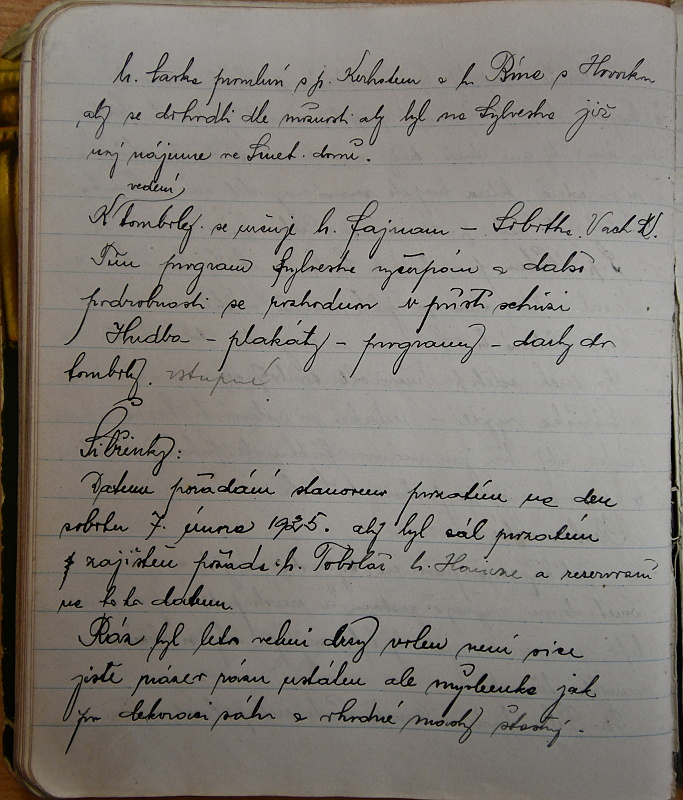 b. Černe promluví s p. Kerhatem a b. Bína s Hovorkou
aby se dohodli dle možnosti aby byl na Sylvestra již
v nájmu ve Smet. domě.
vedení
K tomboly se určuje b. Fajnam – Sobotka. Vach
program Sylvestra vyčerpán a další
podrobnosti se rozhodnou v příští schůzi
Hudba – plakáty – programy – dary do
tomboly. vstupné
Šibřinky:
Datum pořádání stanoveno prozatím na den
sobotu 7. února 1925. aby byl sál prozatím
zajištěn požádá b. Tobolář b. a reservaci
na toto datum.
Ráz byl letos velmi volen není sice
jistě název rázu ustálen ale myšlenka jak
po dekoraci sálu a vhodné masky šťastný.